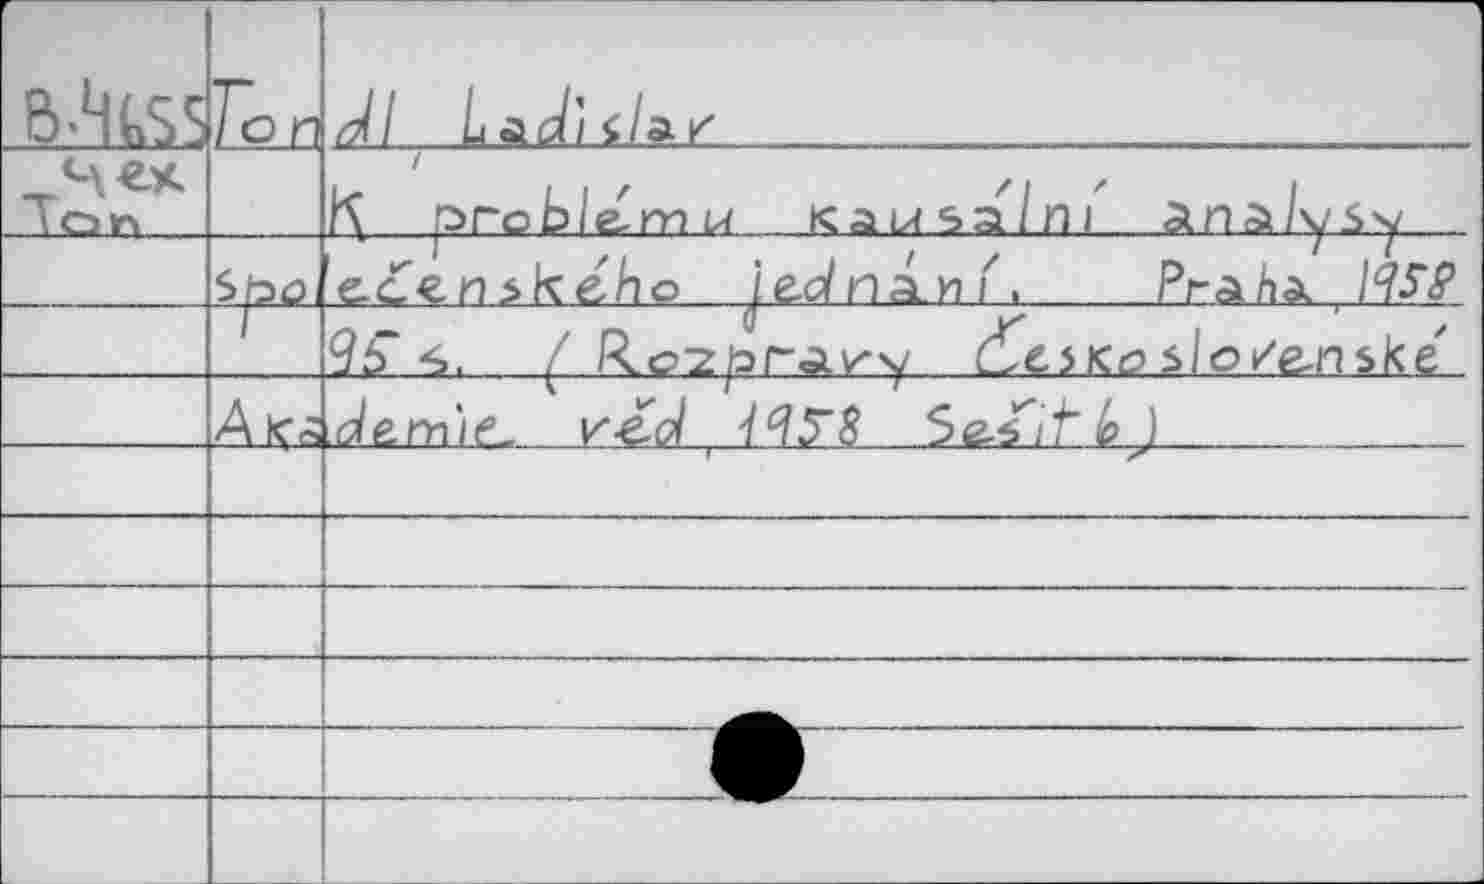 В-4655 Tondl Ladislav
Чех
Ton K problému kausální analysy
společenského jednání, Praha, 1958
95 s. (Rozpravy Československé
Akademie věd, 1958 Sešit 6)